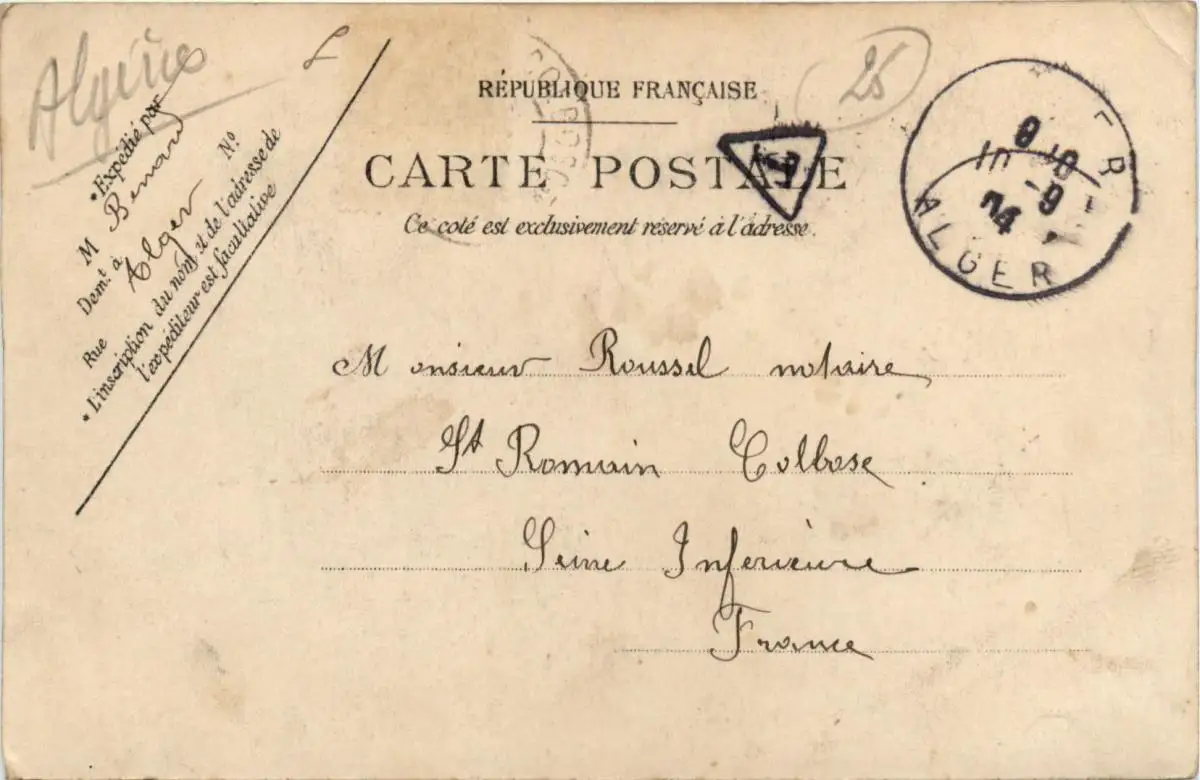 Algérie
25
RÉPUBLIQUE FRANÇAISE
CARTE POSTALE
Ce coté est exclusivement réservé à l'adresse.
• Expédié par
M Benard
Demt. à Alger
Rue N°
• L'inscription du nom et de l'adresse de
l'expéditeur est facultative
ALGER
Monsieur Roussel notaire
St Romain Colbose
Seine Inferieure
France